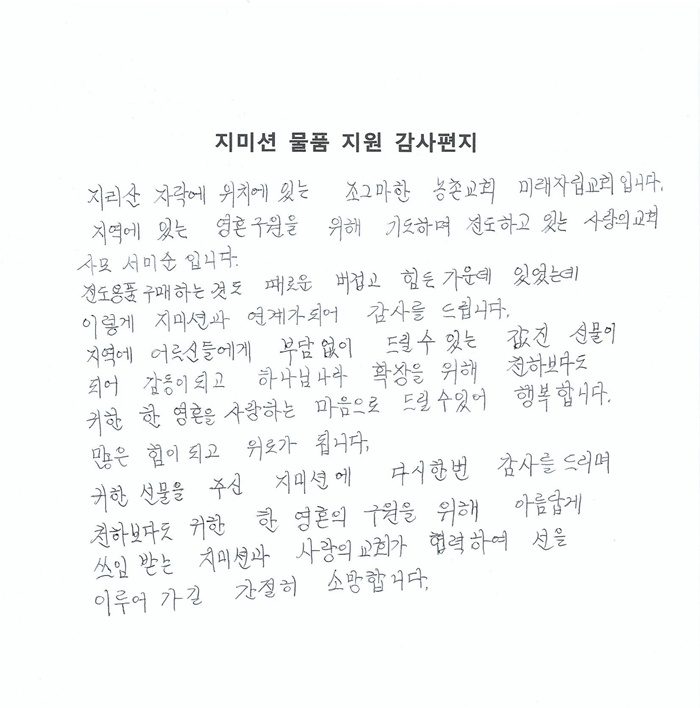 지미션 물품 지원 감사편지
지리산 자락에 위치에 있는 조그마한 농촌교회 미래자립교회입니다.
지역에 있는 영혼구원을 위해 기도하며 전도하고 있는 사랑의교회
사모 서미순 입니다.
전도용품 구매하는것도 때로운 버겁고 힘든가운데 있었는데
이렇게 지미션과 연계가되어 감사를 드립니다.
지역에 어르신들에게 부담없이 드릴수있는 값진 선물이
되어 감동이되고 하나님나라 확장을 위해 천하보다도
귀한 한 영혼을 사랑하는 마음으로 드릴수있어 행복합니다.
많은 힘이되고 위로가 됩니다.
귀한 선물을 주신 지미션에 다시한번 감사를 드리며
천하보다도 귀한 한 영혼의 구원을 위해 아름답게
쓰임 받는 지미션과 사랑의교회가 협력하여 선을
이루어 가길 간절히 소망합니다.